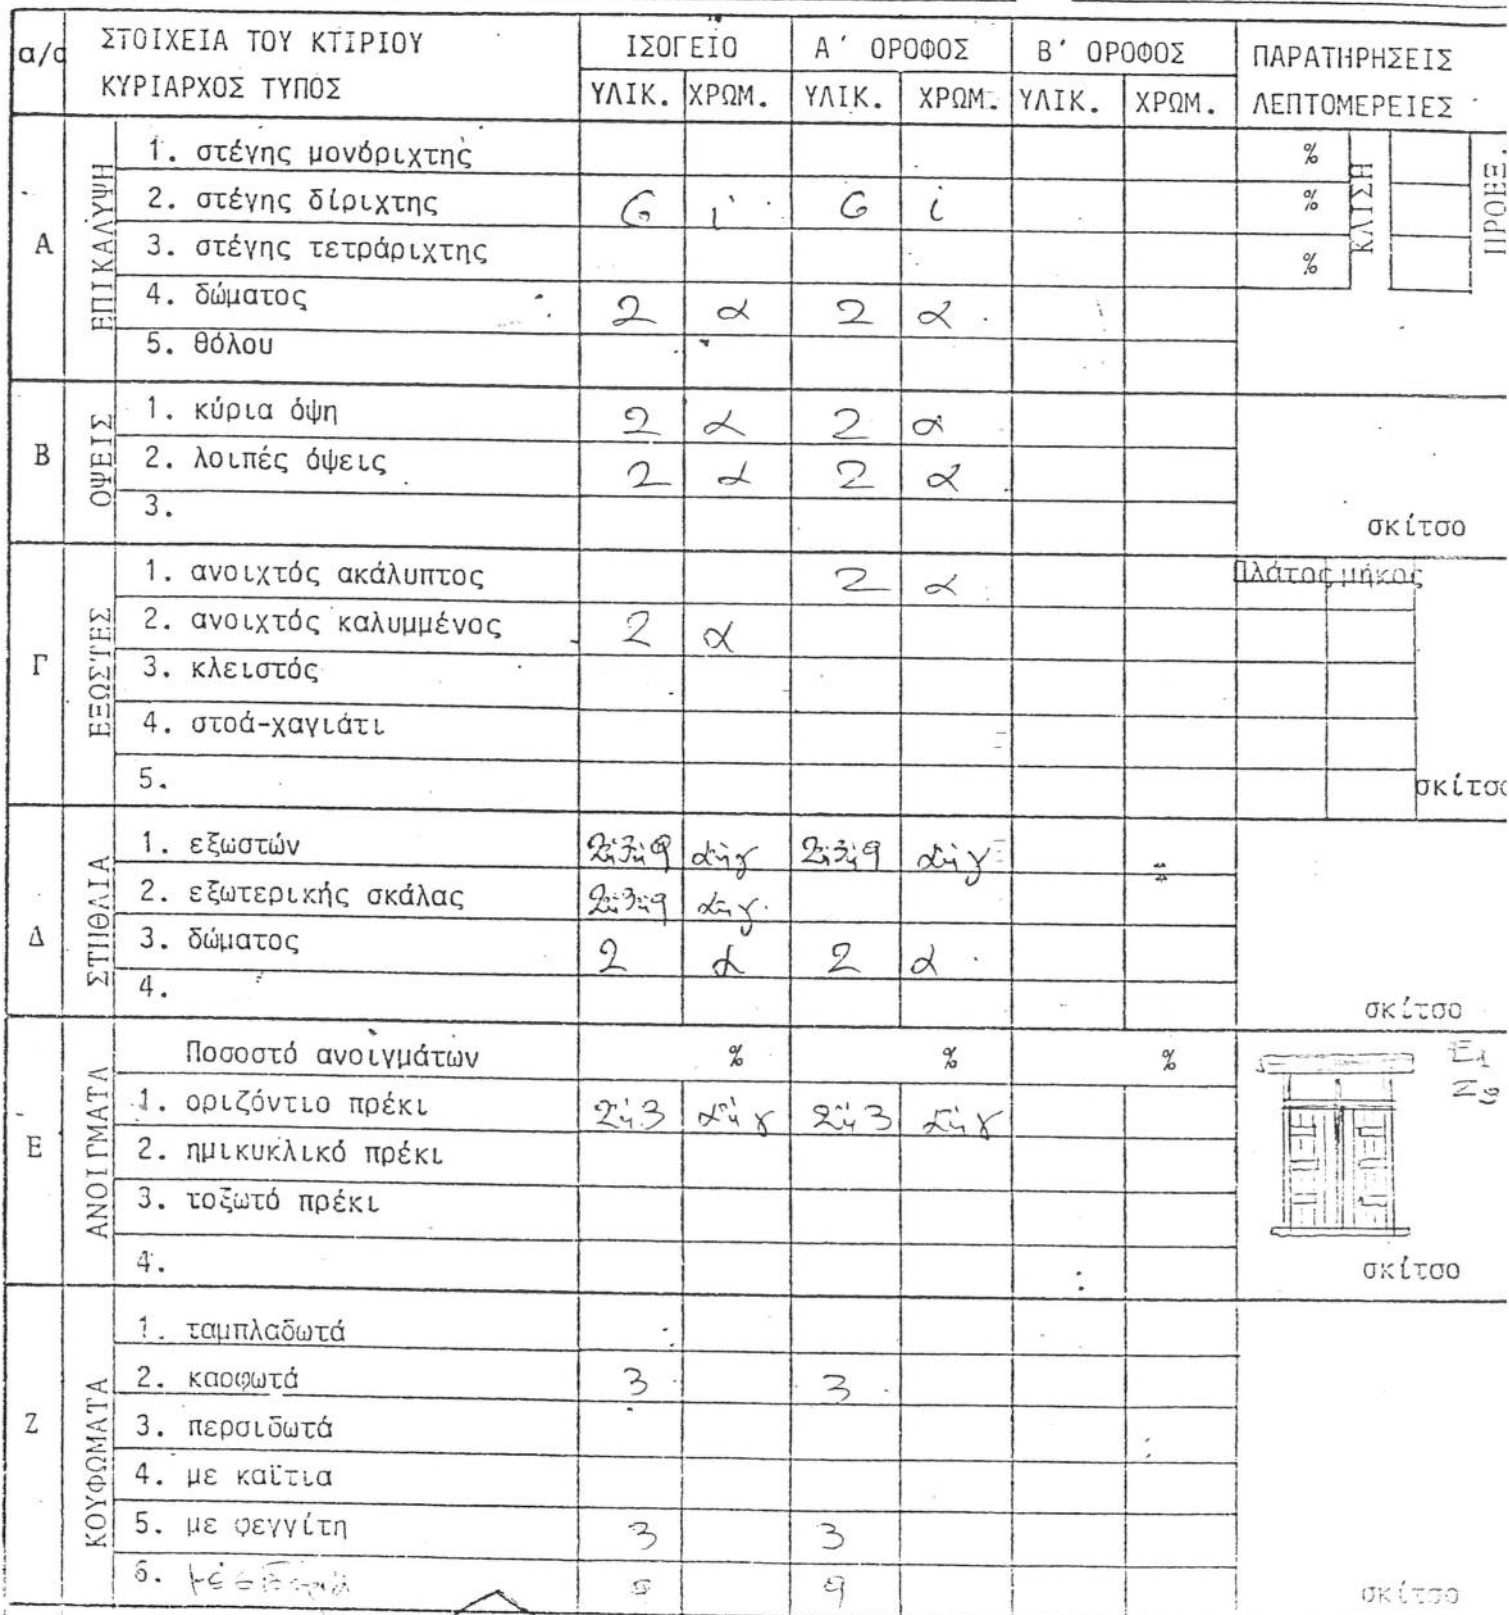 α/α ΣΤΟΙΧΕΙΑ ΤΟΥ ΚΤΙΡΙΟΥ ΙΣΟΓΕΙΟ Α΄ ΟΡΟΦΟΣ Β΄ ΟΡΟΦΟΣ ΠΑΡΑΤΗΡΗΣΕΙΣ
ΚΥΡΙΑΡΧΟΣ ΤΥΠΟΣ ΥΛΙΚ. ΧΡΩΜ. ΥΛΙΚ. ΧΡΩΜ. ΥΛΙΚ. ΧΡΩΜ. ΛΕΠΤΟΜΕΡΕΙΕΣ
Α ΕΠΙΚΑΛΥΨΗ
1. στέγης μονόριχτης % ΚΛΙΣΗ ΠΡΟΕΞ.
2. στέγης δίριχτης 6 i 6 i %
3. στέγης τετράριχτης %
4. δώματος 2 α 2 α
5. θόλου
Β ΟΨΕΙΣ
1. κύρια όψη 2 α 2 α
2. λοιπές όψεις 2 α 2 α
3. σκίτσο
Γ ΕΞΩΣΤΕΣ
1. ανοιχτός ακάλυπτος 2 α Πλάτος μήκος
2. ανοιχτός καλυμμένος 2 α
3. κλειστός
4. στοά-χαγιάτι
5. σκίτσο
Δ ΣΤΗΘΑΙΑ
1. εξωστών 2ή3ή9 αήγ 2ή3ή9 αήγ
2. εξωτερικής σκάλας 2ή3ή9 αήγ
3. δώματος 2 α 2 α
4. σκίτσο
Ε ΑΝΟΙΓΜΑΤΑ
Ποσοστό ανοιγμάτων % % % Ε1
1. οριζόντιο πρέκι 2ή3 αήγ 2ή3 αήγ
2. ημικυκλικό πρέκι
3. τοξωτό πρέκι
4. σκίτσο
Ζ ΚΟΥΦΩΜΑΤΑ
1. ταμπλαδωτά
2. καρφωτά 3 3
3. περσιδωτά
4. με καϊτια
5. με φεγγίτη 3 3
6. 9 σκίτσο